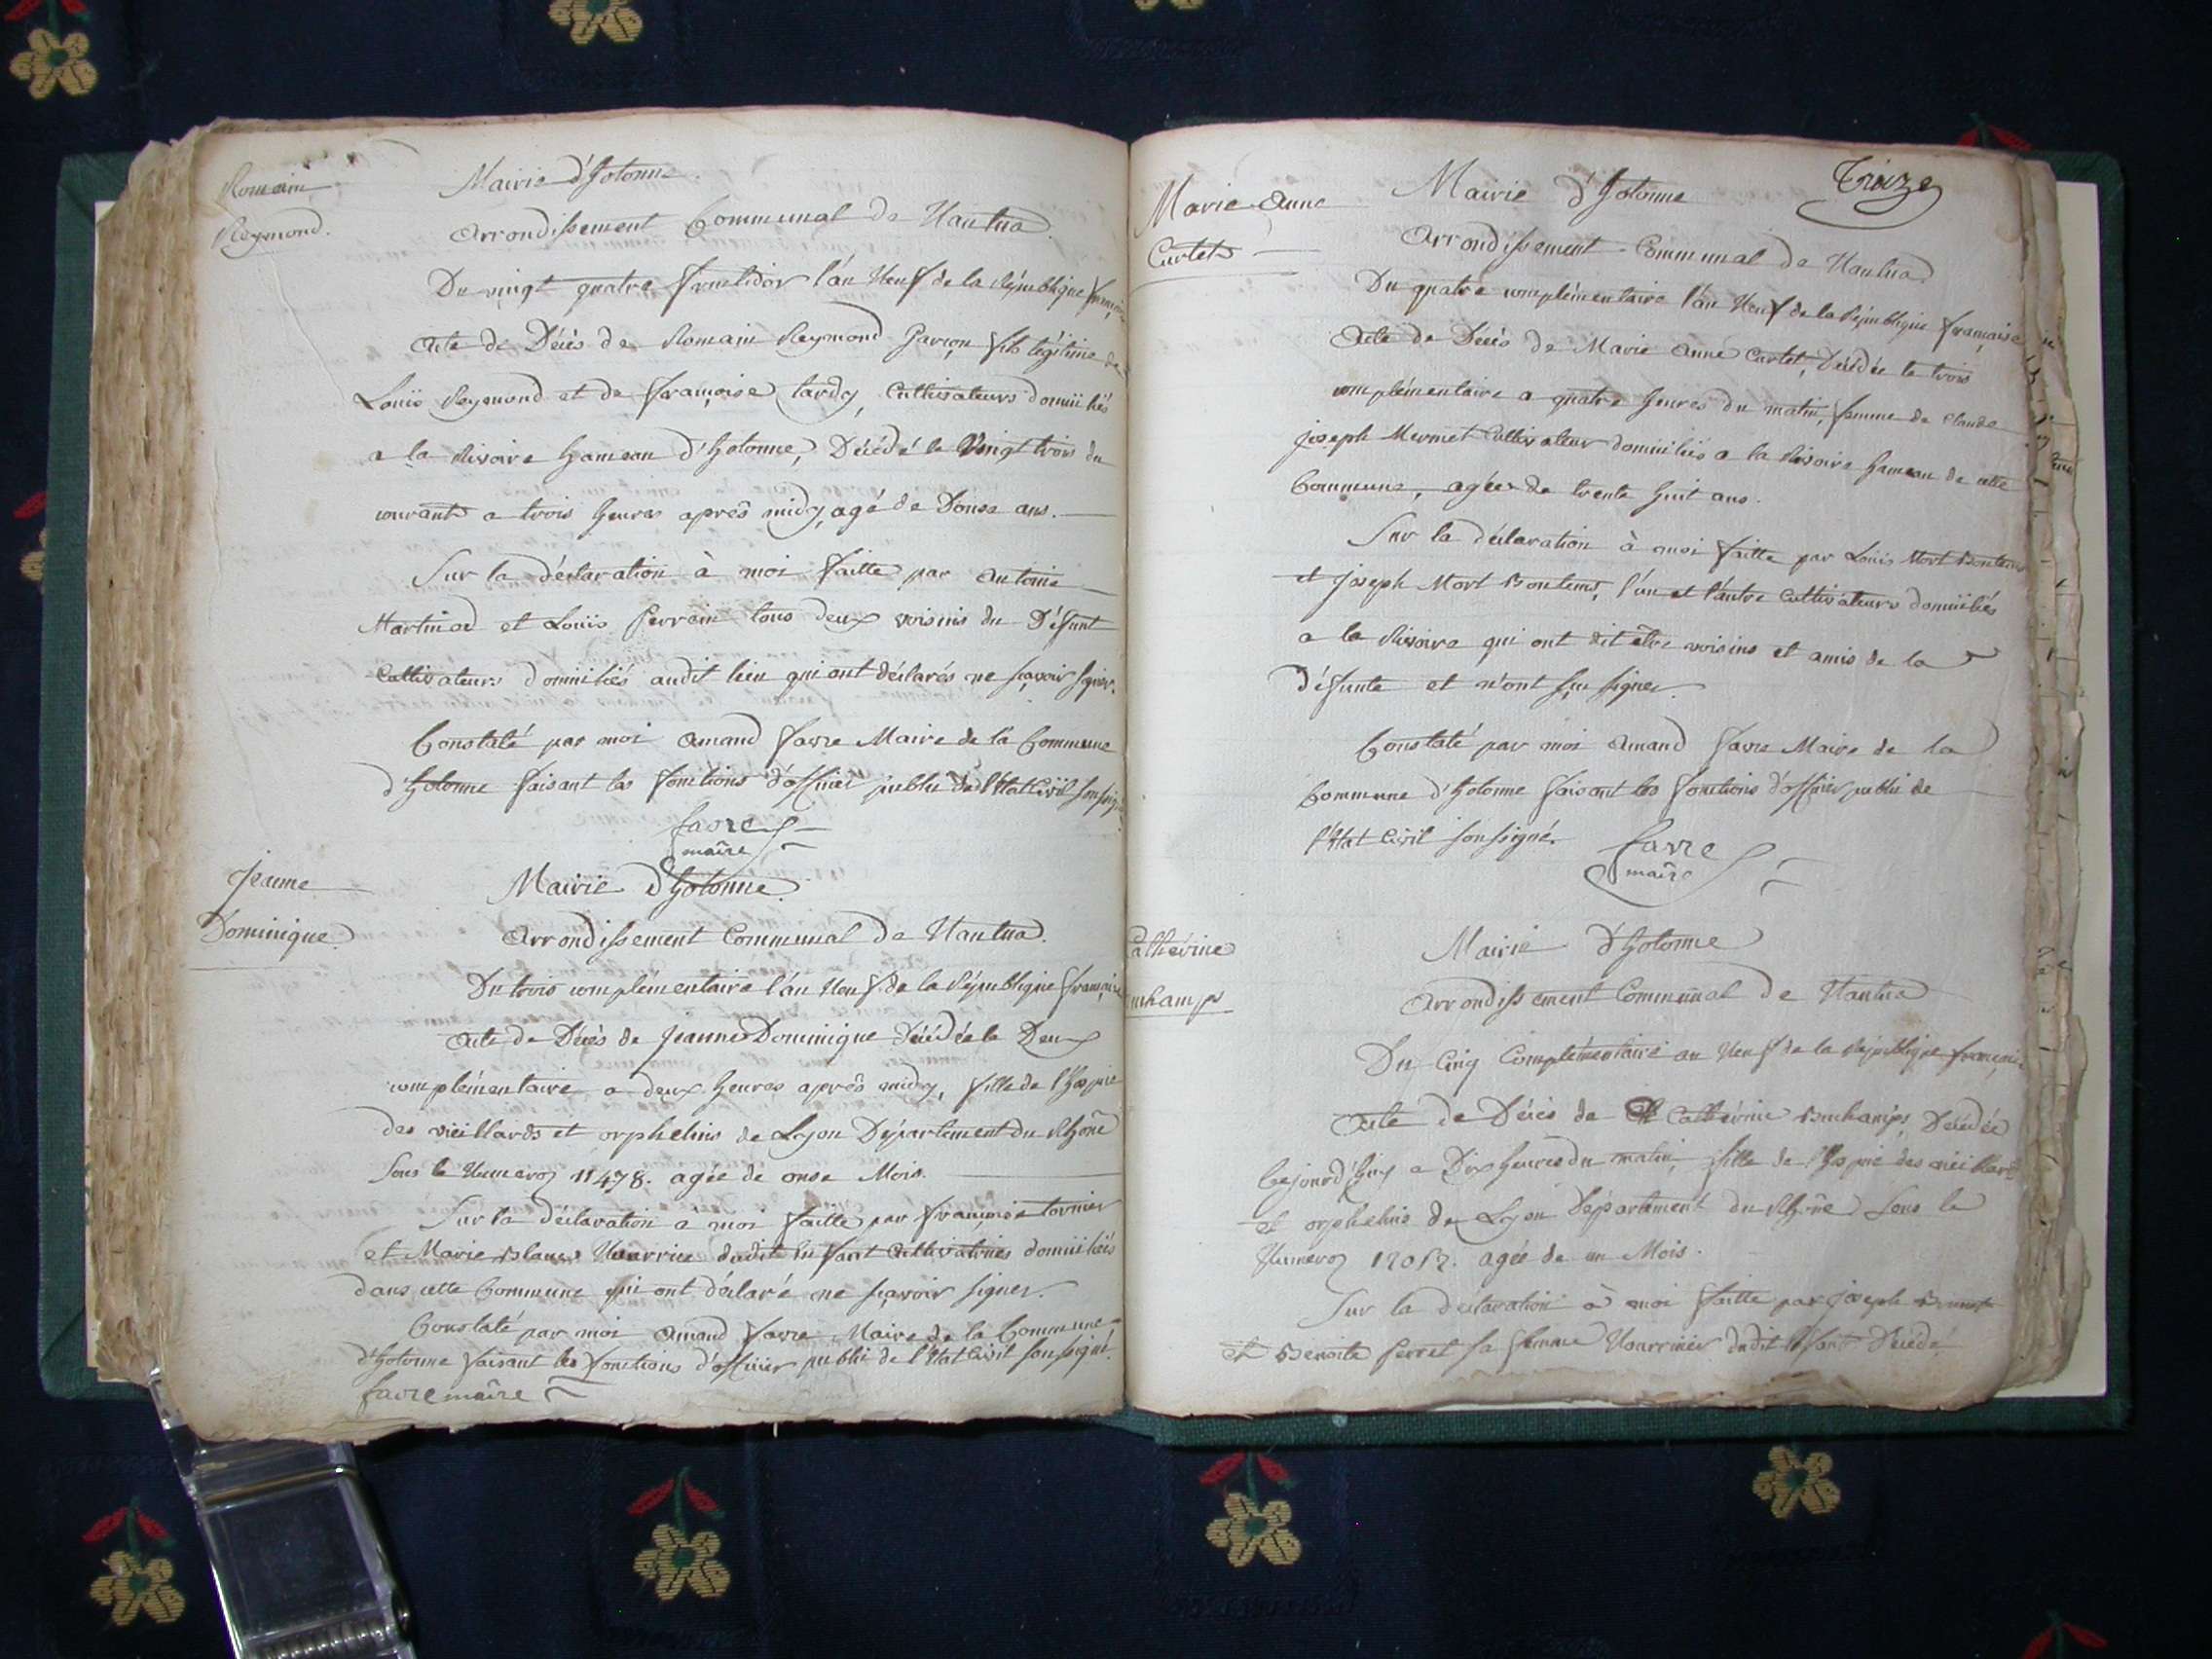 Romain
Reymond.
Mairie d'hotonne.
Arrondissement Communal de Nantua.
Du vingt quatre fructidor l'an Neuf de la République française
Acte de Décès de Romain Reymond Garçon fils légitime de
Louis Reymond et de françoise tardy, Cultivateurs domiciliés
a la Rivoire hameau d'hotonne, Décédé le Vingt trois du
courant a trois heures après midy, agé de Douse ans.
Sur la déclaration à moi faitte par Antoine
Martinod et Louis Perrein tous deux voisins du Défunt
Cultivateurs domiciliés audit lieu qui ont déclarés ne sçavoir signer.
Constaté par moi Amand favre Maire de la Commune
d'hotonne faisant les fonctions d'officier public de l'Etat Civil soussigné.
favre
maire
Jeanne
Dominique.
Mairie d'hotonne.
Arrondissement Communal de Nantua.
Du trois complémentaire l'an Neuf de la République française
Acte de Décès de Jeanne Dominique Décédée le Deux
complémentaire a deux heures après midy, fille de l'hospice
des vieillards et orphelins de Lyon Département du Rhône
sous le Numero 11478. agée de onse Mois.
Sur la déclaration a moi faitte par françois tornier
et Marie Blanc Nourrice dudit Enfant Cultivatrices domiciliés
dans cette Commune qui ont déclaré ne sçavoir signer.
Constaté par moi Amand favre Maire de la Commune
d'hotonne faisant les fonctions d'officier public de l'Etat Civil soussigné.
favre maire
Treize
Marie Anne
Curtet
Mairie d'hotonne
Arrondissement Communal de Nantua
Du quatre complémentaire l'an Neuf de la République française
Acte de Décès de Marie Anne Curtet, Décédée le trois
complémentaire a quatre heures du matin, femme de Claude
joseph Mermet Cultivateur domiciliés a la Rivoire hameau de cette
Commune, agée de trente huit ans.
Sur la déclaration à moi faitte par Louis Mort Bontems
et joseph Mort Bontems, l'un et l'autre Cultivateurs domiciliés
a la Rivoire qui ont dit être voisins et amis de la
défunte et n'ont sçu signer.
Constaté par moi Amand favre Maire de la
Commune d'hotonne faisant les fonctions d'officier public de
l'Etat Civil soussigné.
favre
maire
Cathérine
nchamps
Mairie d'hotonne
Arrondissement Communal de Nantua
Du Cinq Complémentaire an Neuf de la République française
Acte de Décès de Cathérine Buchamps, Décédée
Cejourd'huy a Dix heures du matin, fille de l'hospice des vieillards
et orphelins de Lyon Département du Rhône sous le
Numero agée de un Mois.
Sur la déclaration à moi faitte par joseph
et Benoite Perret sa femme Nourricier dudit Enfant Décédé